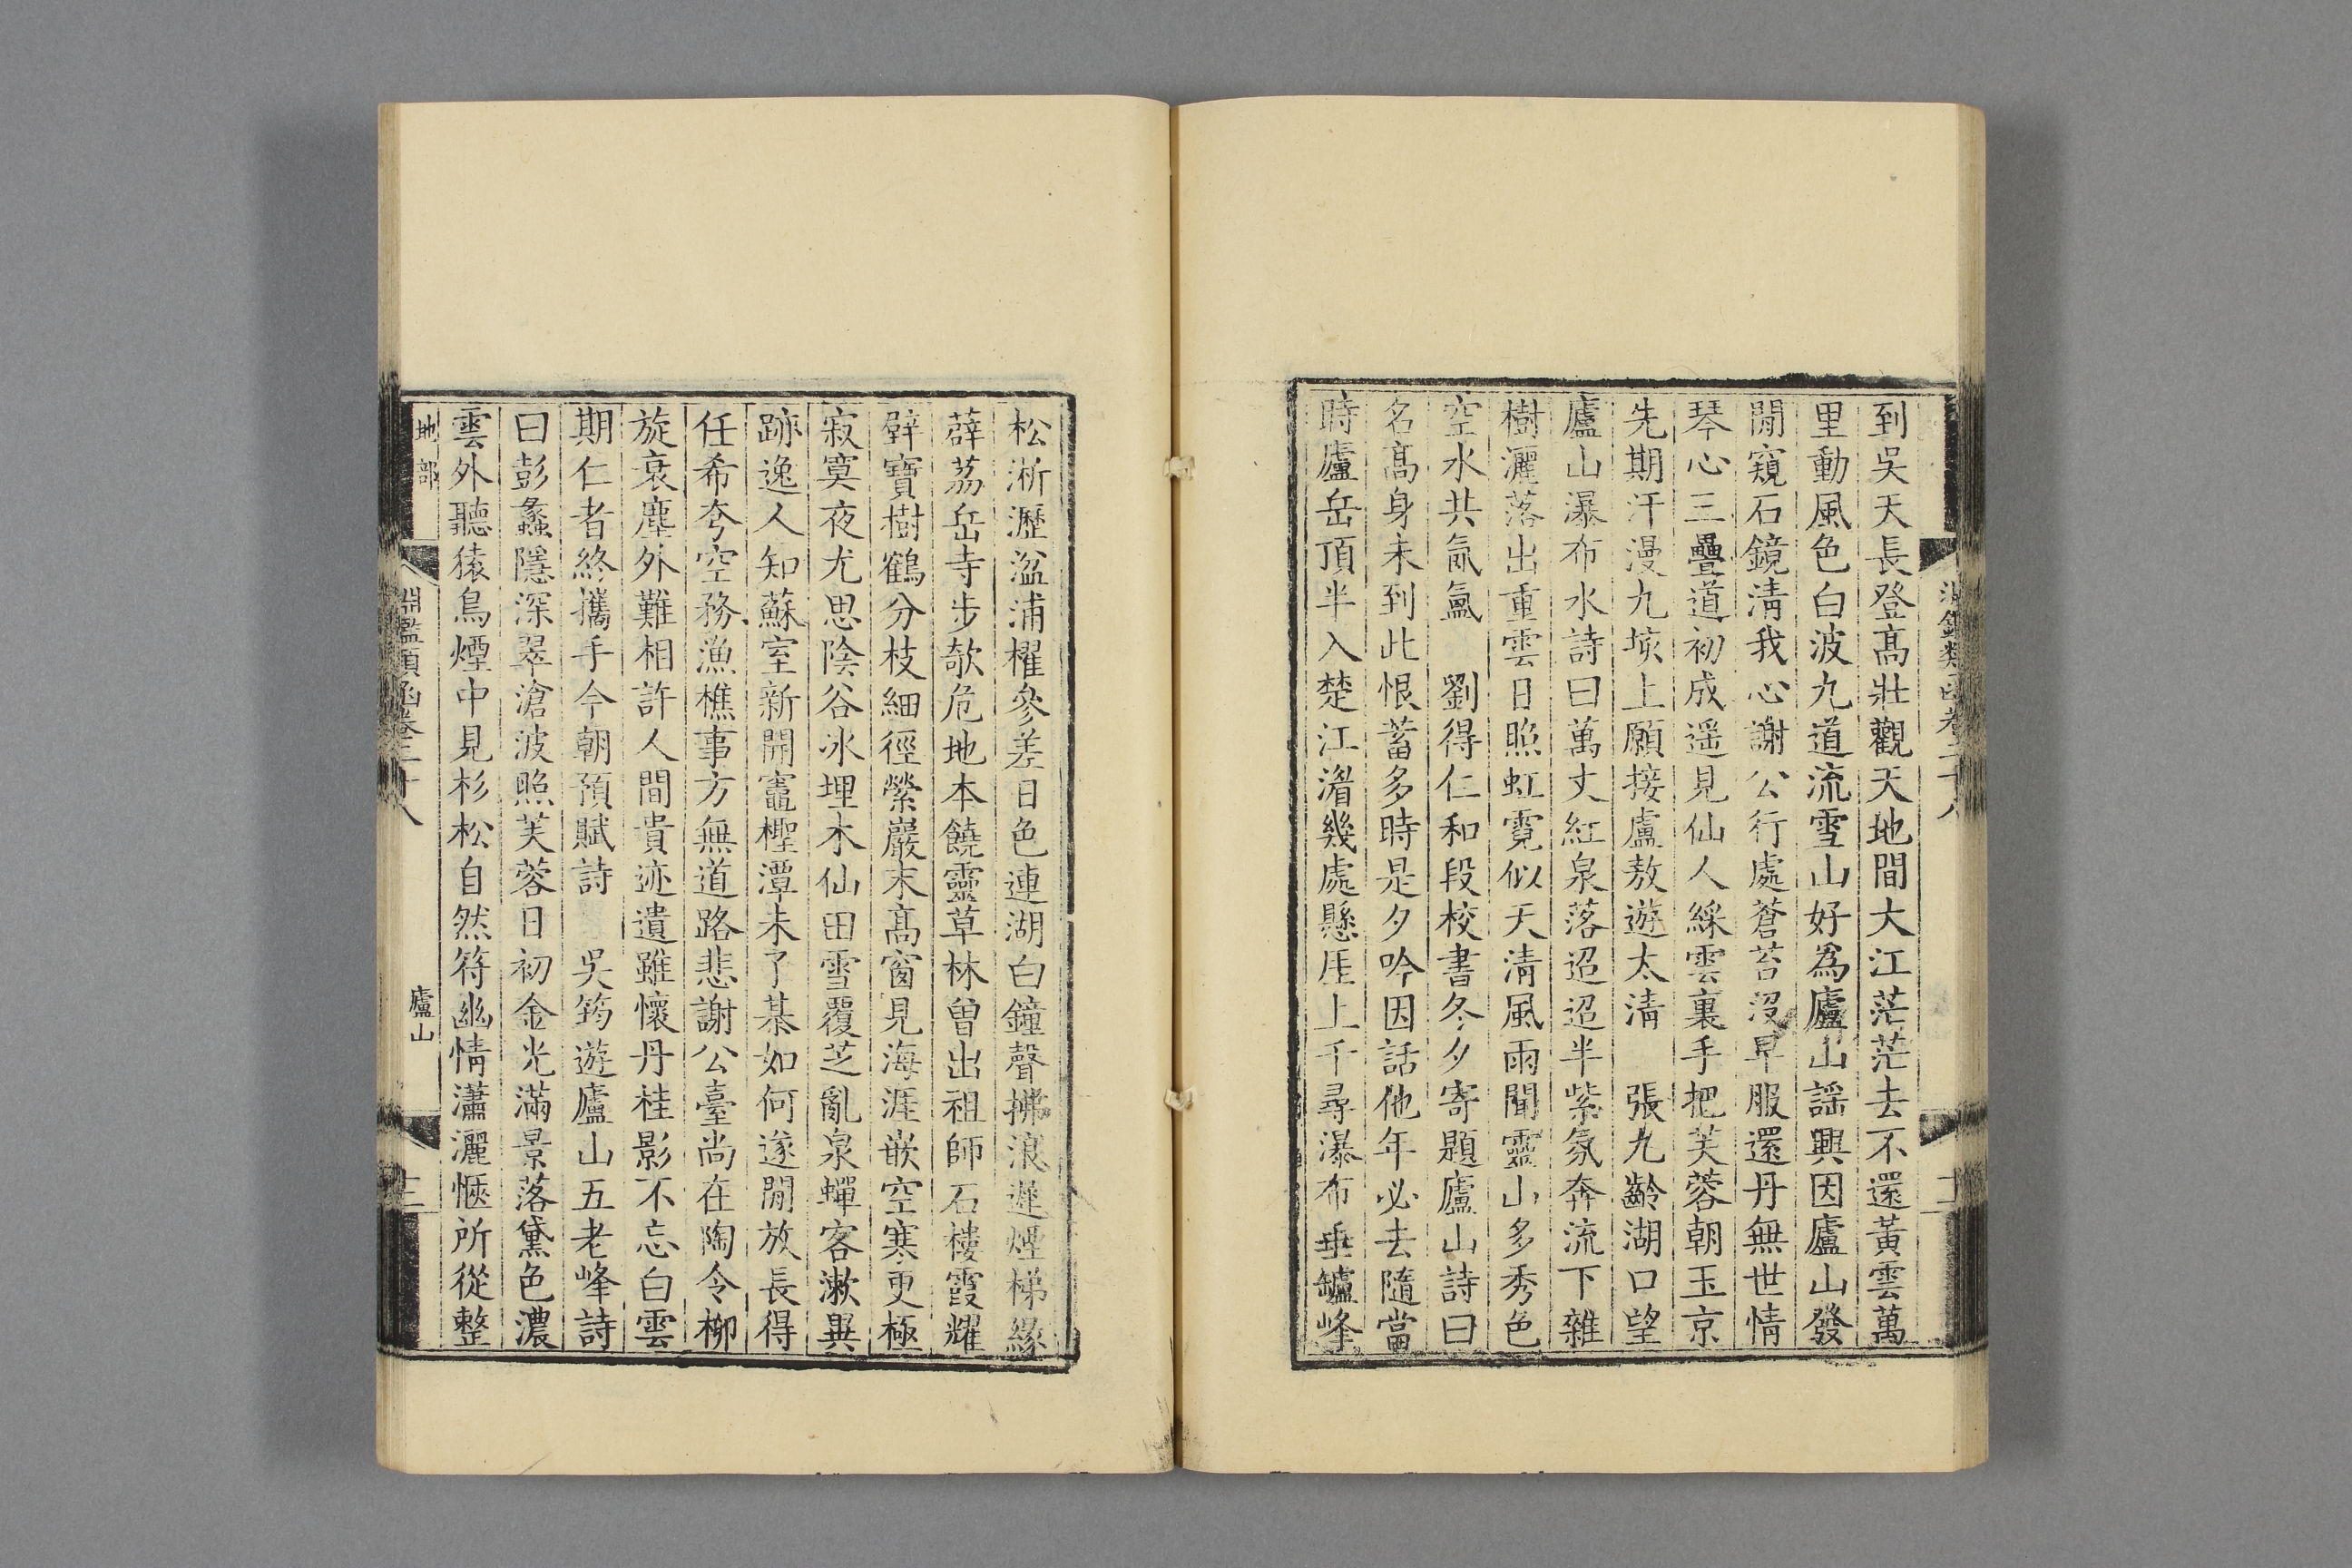 到吳天長登高壯觀天地間大江茫茫去不還黃雲萬
里動風色白波九道流雪山好爲廬山謡興因廬山發
閒窺石鏡清我心謝公行處蒼苔沒早服還丹無世情
琴心三疊道初成遥見仙人綵雲裏手把芙蓉朝玉京
先期汗漫九垓上願接盧敖遊太清　張九齡湖口望
廬山瀑布水詩曰萬丈紅泉落迢迢半紫氛奔流下雜
樹灑落出重雲日照虹霓似天清風雨聞靈山多秀色
空水共氤氳　劉得仁和段校書冬夕寄題廬山詩曰
名髙身未到此恨蓄多時是夕吟因話他年必去隨當
時廬岳頂半入楚江湄幾處懸厓上千尋瀑布垂鑪峰
松淅瀝湓浦櫂參差日色連湖白鐘聲拂浪遲煙梯緣
薜荔岳寺步欹危地本饒靈草林曾出祖師石樓霞耀
壁寶樹鶴分枝細徑縈巖末髙窗見海涯嵌空寒更極
寂寞夜尤思陰谷冰埋木仙田雪覆芝亂泉蟬客漱異
跡逸人知蘇室新開竈檉潭未了棊如何遂閒放長得
任希夸空務漁樵事方無道路悲謝公臺尚在陶令柳
旋衰塵外難相許人間貴迹遺雖懷丹桂影不忘白雲
期仁者終攜手今朝預賦詩　吳筠遊廬山五老峰詩
曰彭蠡隱深翠滄波照芙蓉日初金光滿景落黛色濃
雲外聽猿鳥煙中見杉松自然符幽情瀟灑愜所從整
地部　淵鑑類函卷二十八　廬山　十二